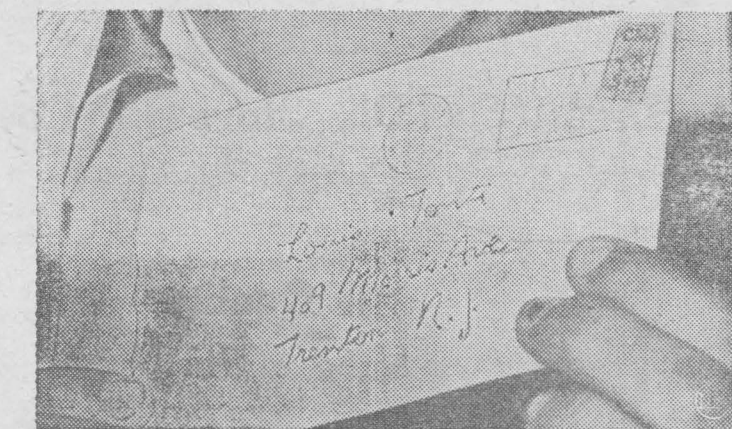 Louis Tonti
409 Morris Ave
Trenton N. J.